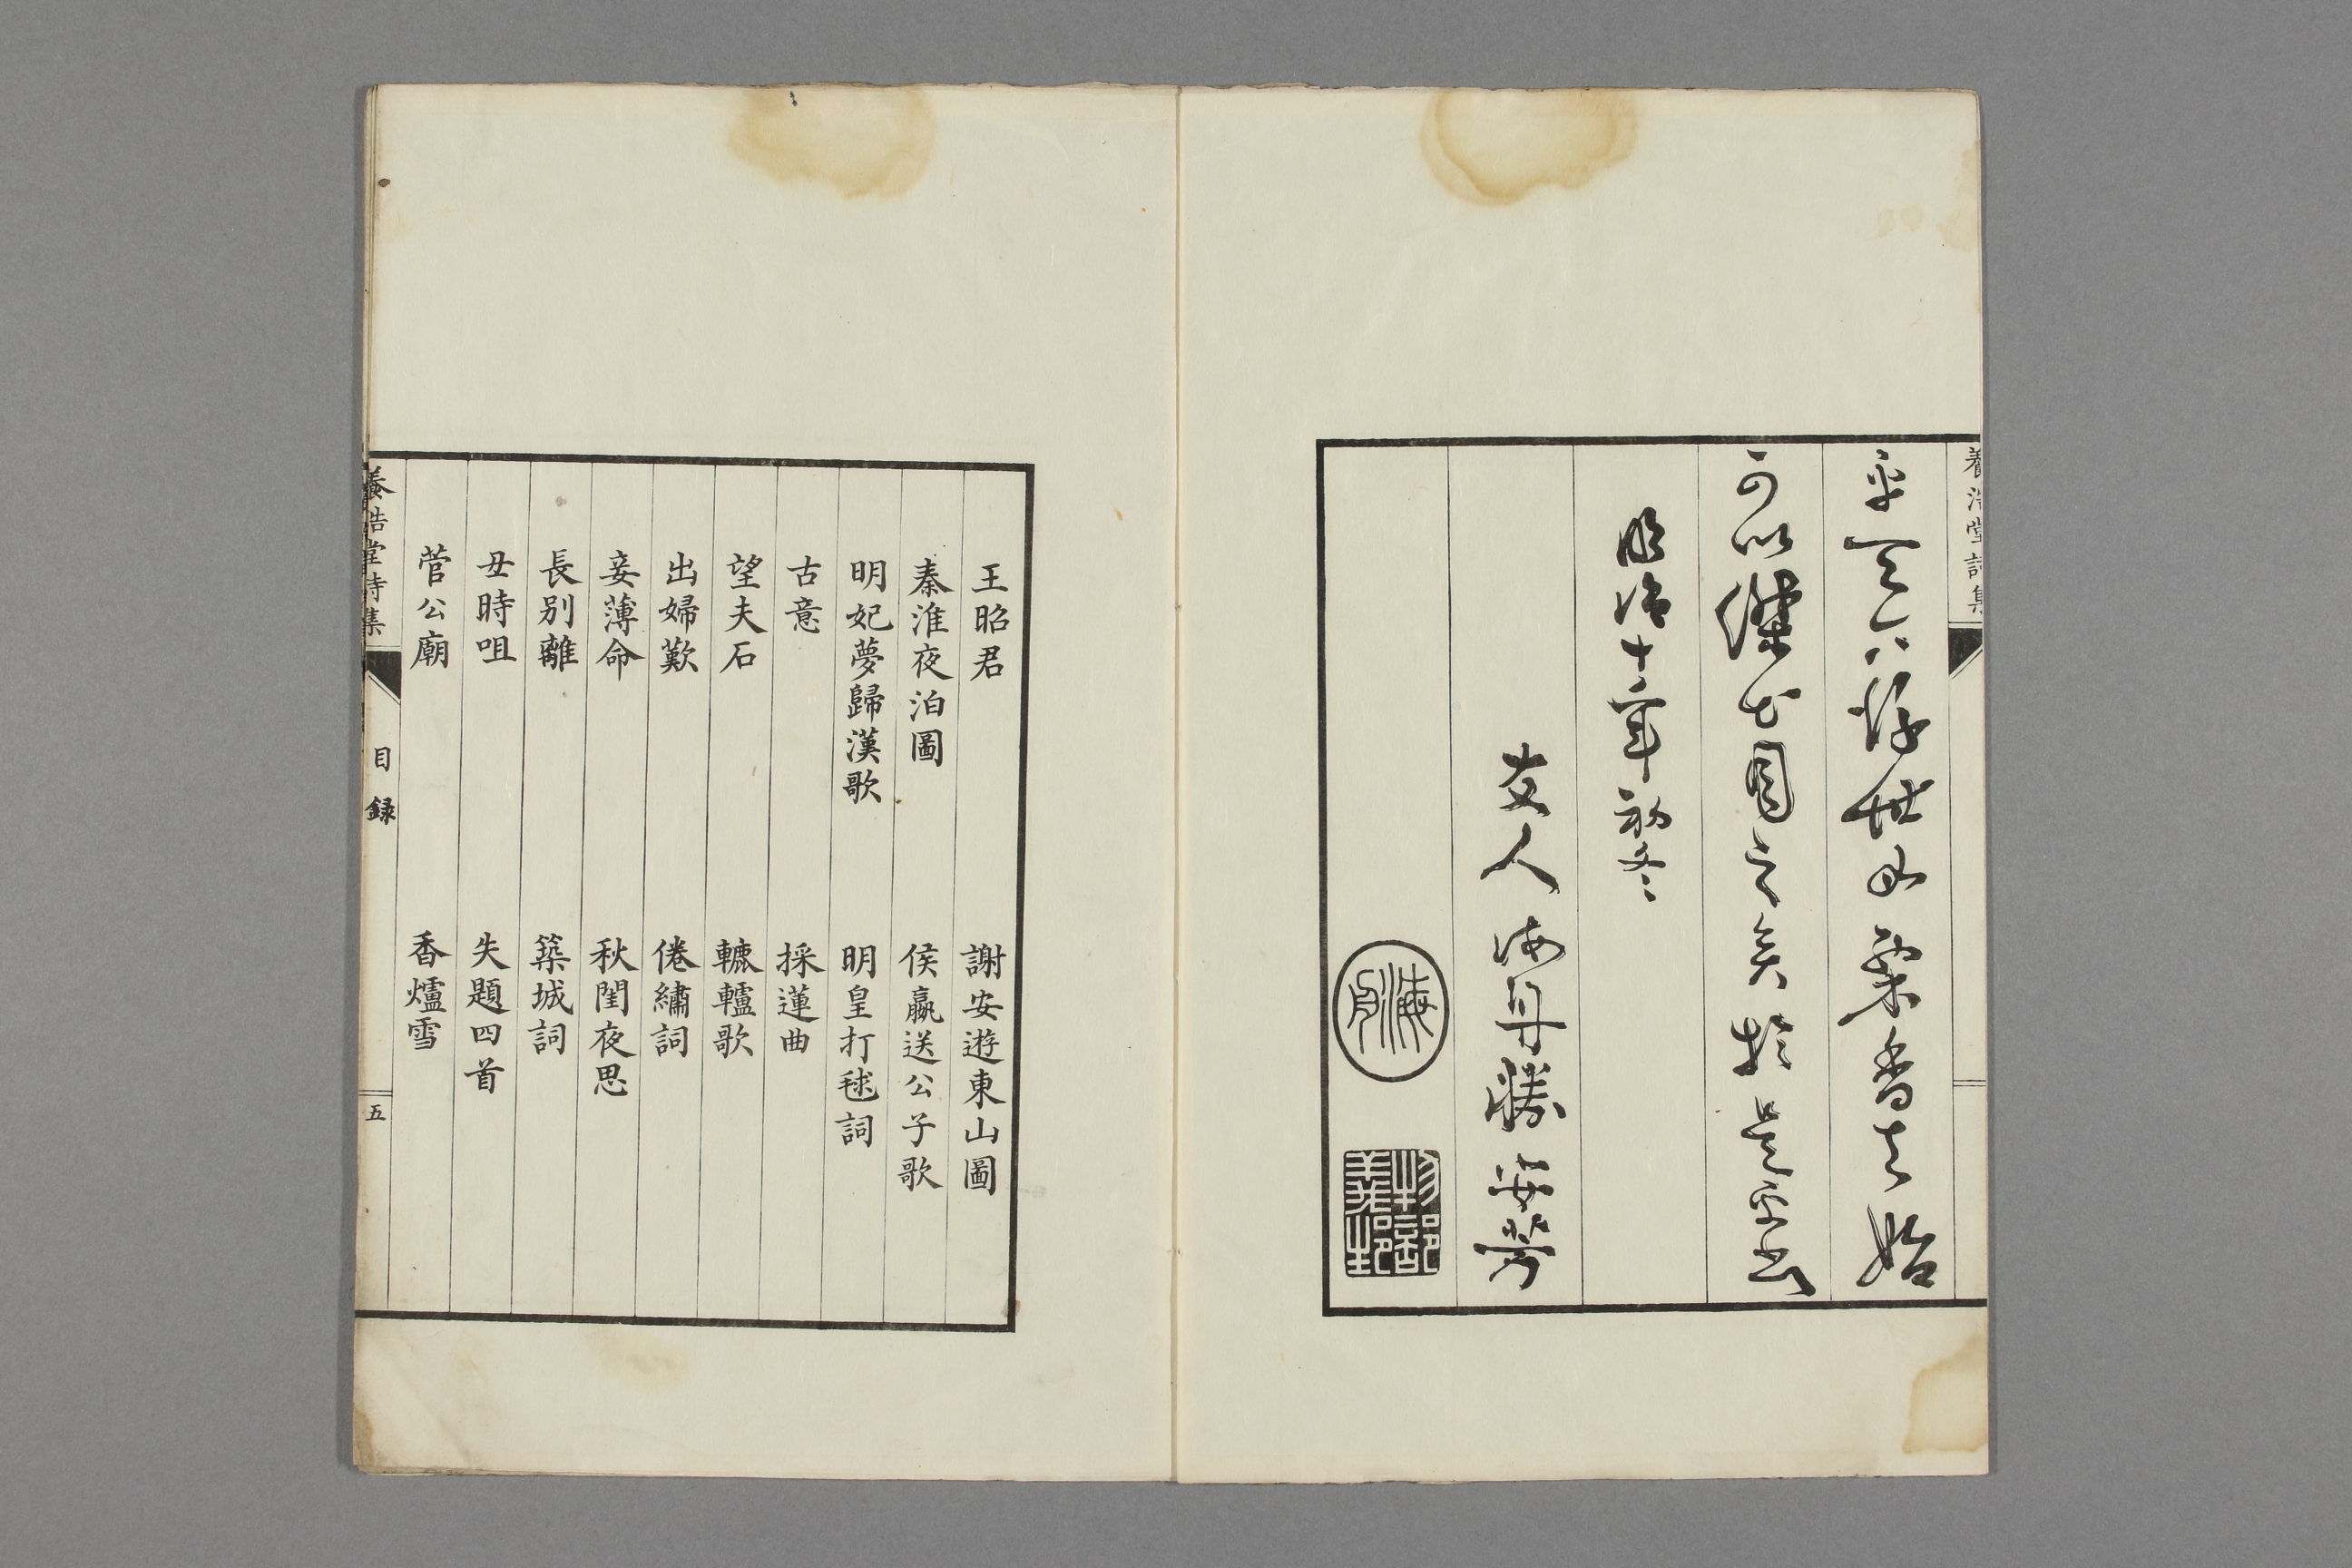 養浩堂詩集
世
業者始
可以傑士目之矣於是乎書
明治十年初冬
友人海舟勝安芳
海舟
物部義邦
王昭君
謝安遊東山圖
秦淮夜泊圖
侯嬴送公子歌
明妃夢歸漢歌
明皇打毬詞
古意
採蓮曲
望夫石
轆轤歌
出婦歎
倦繡詞
妾薄命
秋閨夜思
長別離
築城詞
丑時咀
失題四首
菅公廟
香爐雪
養浩堂詩集
目録
五